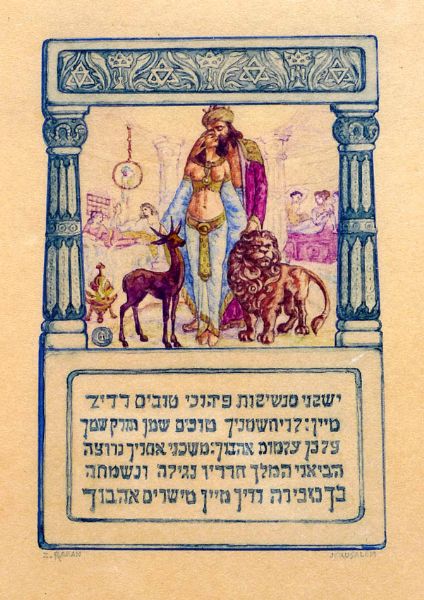 ישקני מנשיקות פיהו כי טובים דדיך
מיין: לריח שמניך טובים שמן תורק שמך
על כן עלמות אהבוך: משכני אחריך נרוצה
הביאני המלך חדריו נגילה ונשמחה
בך נזכירה דדיך מיין מישרים אהבוך
Z. RABAN JERUSALEM